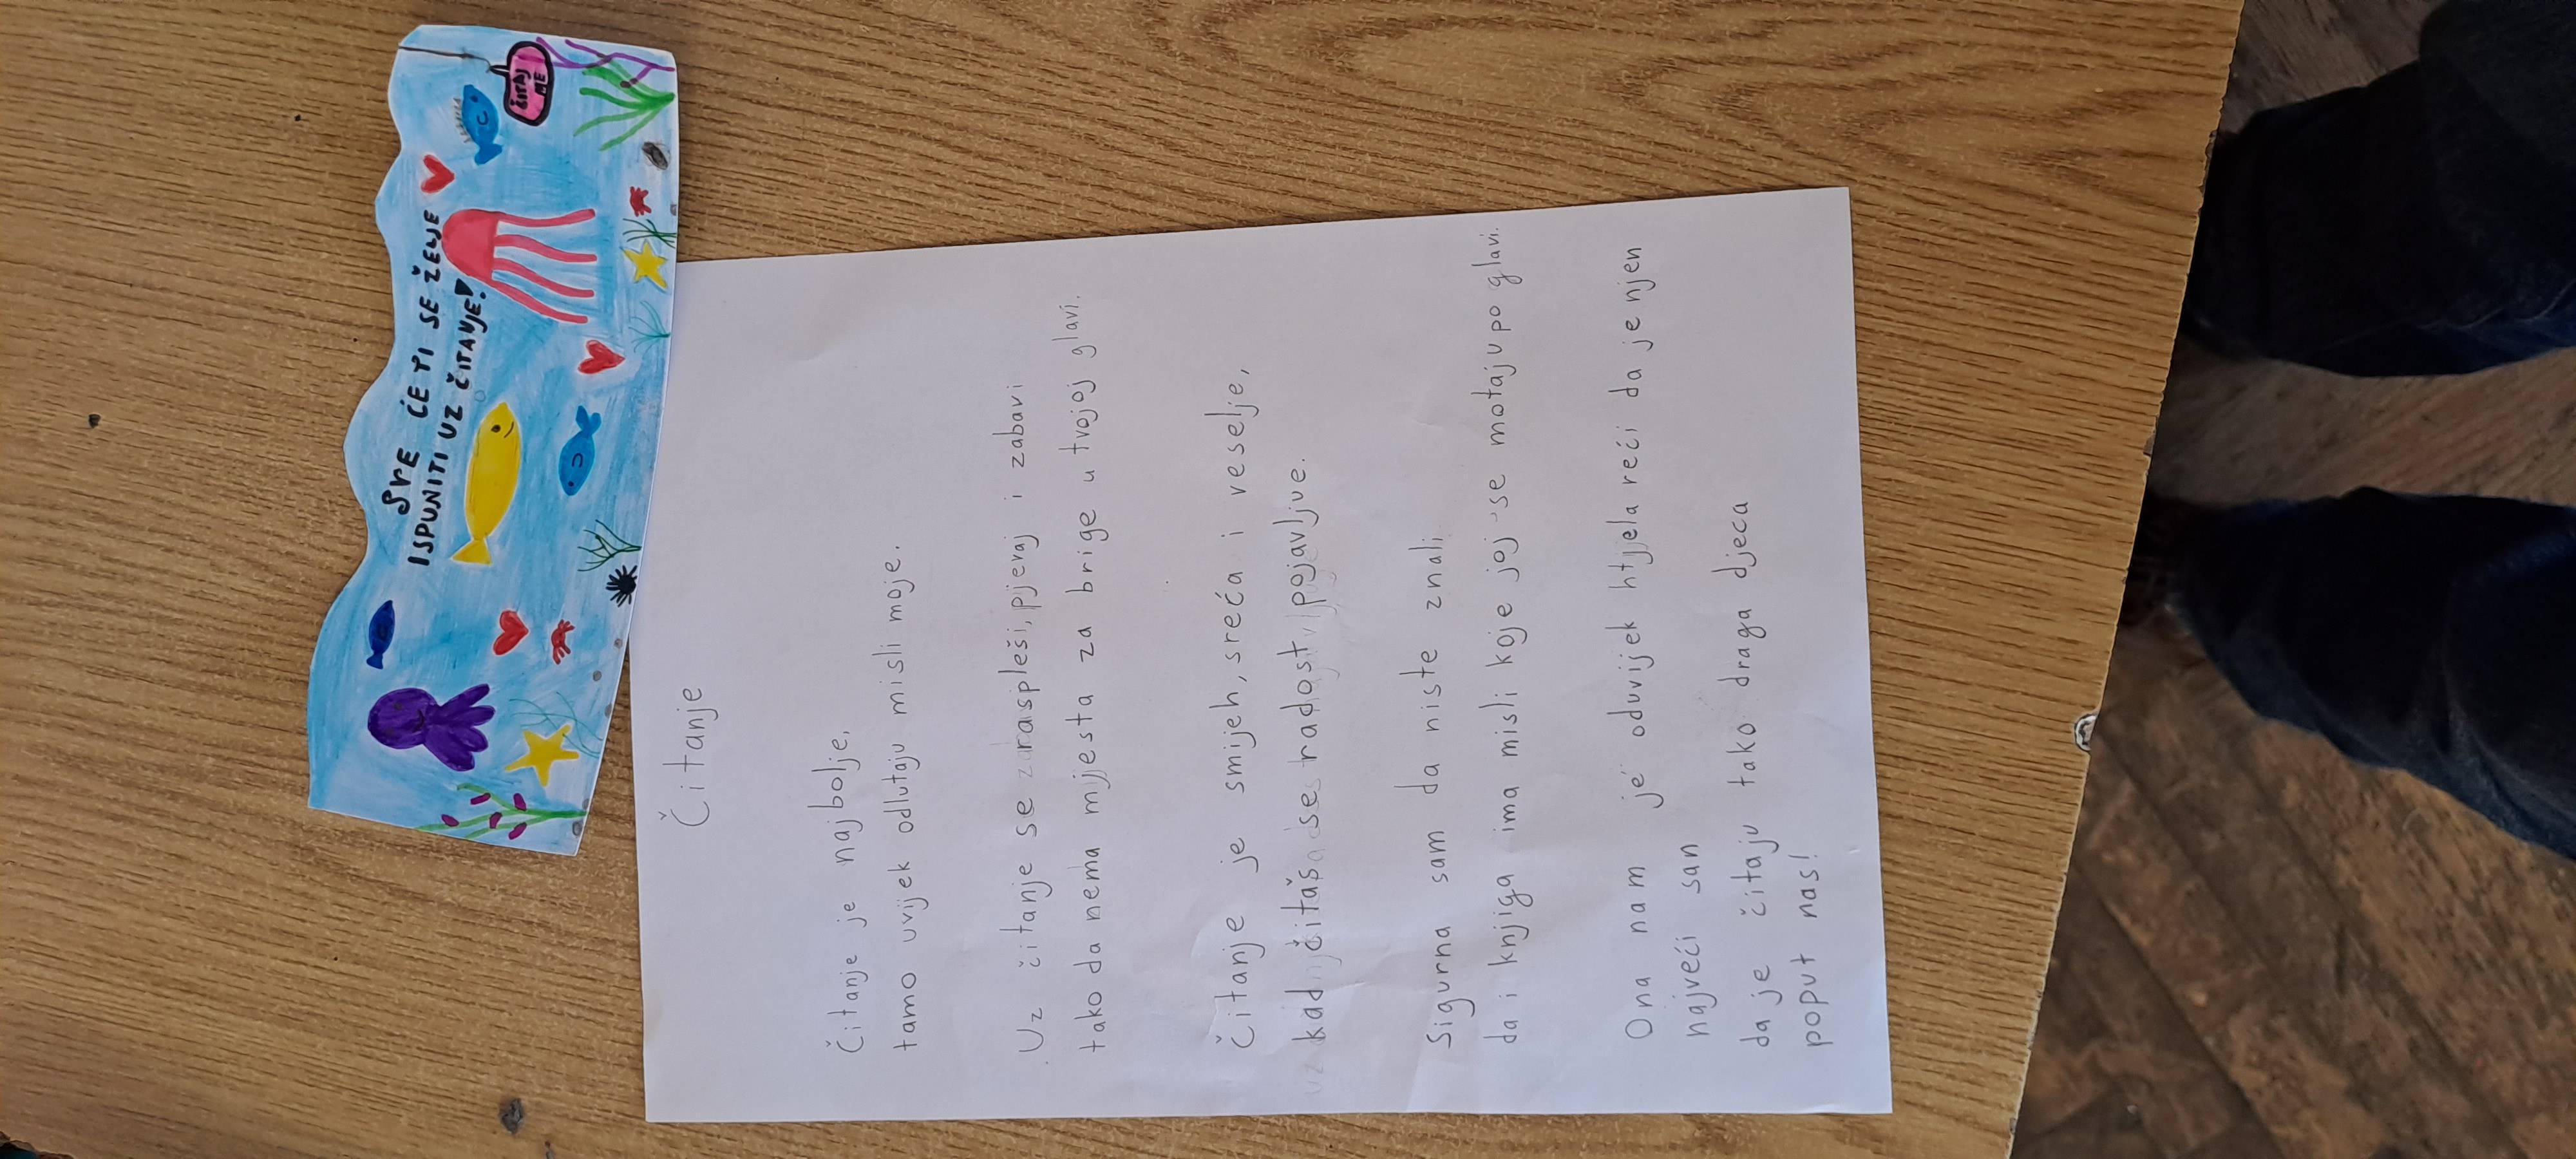 SVE ĆE TI SE ŽELJE
ISPUNITI UZ ČITANJE!
ČITAJ
ME
Čitanje
Čitanje je najbolje,
tamo uvijek odlutaju misli moje.
Uz čitanje se raspleši, pjevaj i zabavi
tako da nema mjesta za brige u tvojoj glavi.
Čitanje je smijeh, sreća i veselje,
kad čitaš se radost pojavljue.
Sigurna sam da niste znali
da i knjiga ima misli koje joj se motaju po glavi.
Ona nam je oduvijek htjela reći da je njen
najveći san
da je čitaju tako draga djeca
poput nas!